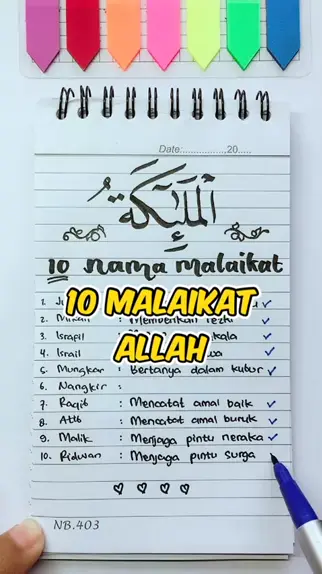 Date:...............,20.....
اَلْمَلٰٓئِكَةُ
10 nama malaikat
10 MALAIKAT
ALLAH
1.
2. Mikail : Memberikan rezki
3. Israfil
4. Israil
5. Mungkar : Bertanya dalam kubur
6. Nangkir :
7. Raqib : Mencatat amal baik
8. Atib : Mencatat amal buruk
9. Malik : Menjaga pintu neraka
10. Ridwan : Menjaga pintu surga
NB.403